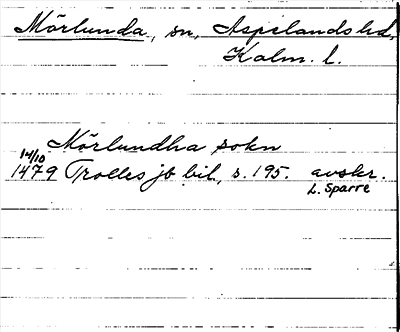 Mörlunda, sn, Aspelands hd,
Kalm. l.
Mörlundha sokn
14/10
1479 Trolles jb bil, s. 195. avskr.
L. Sparre